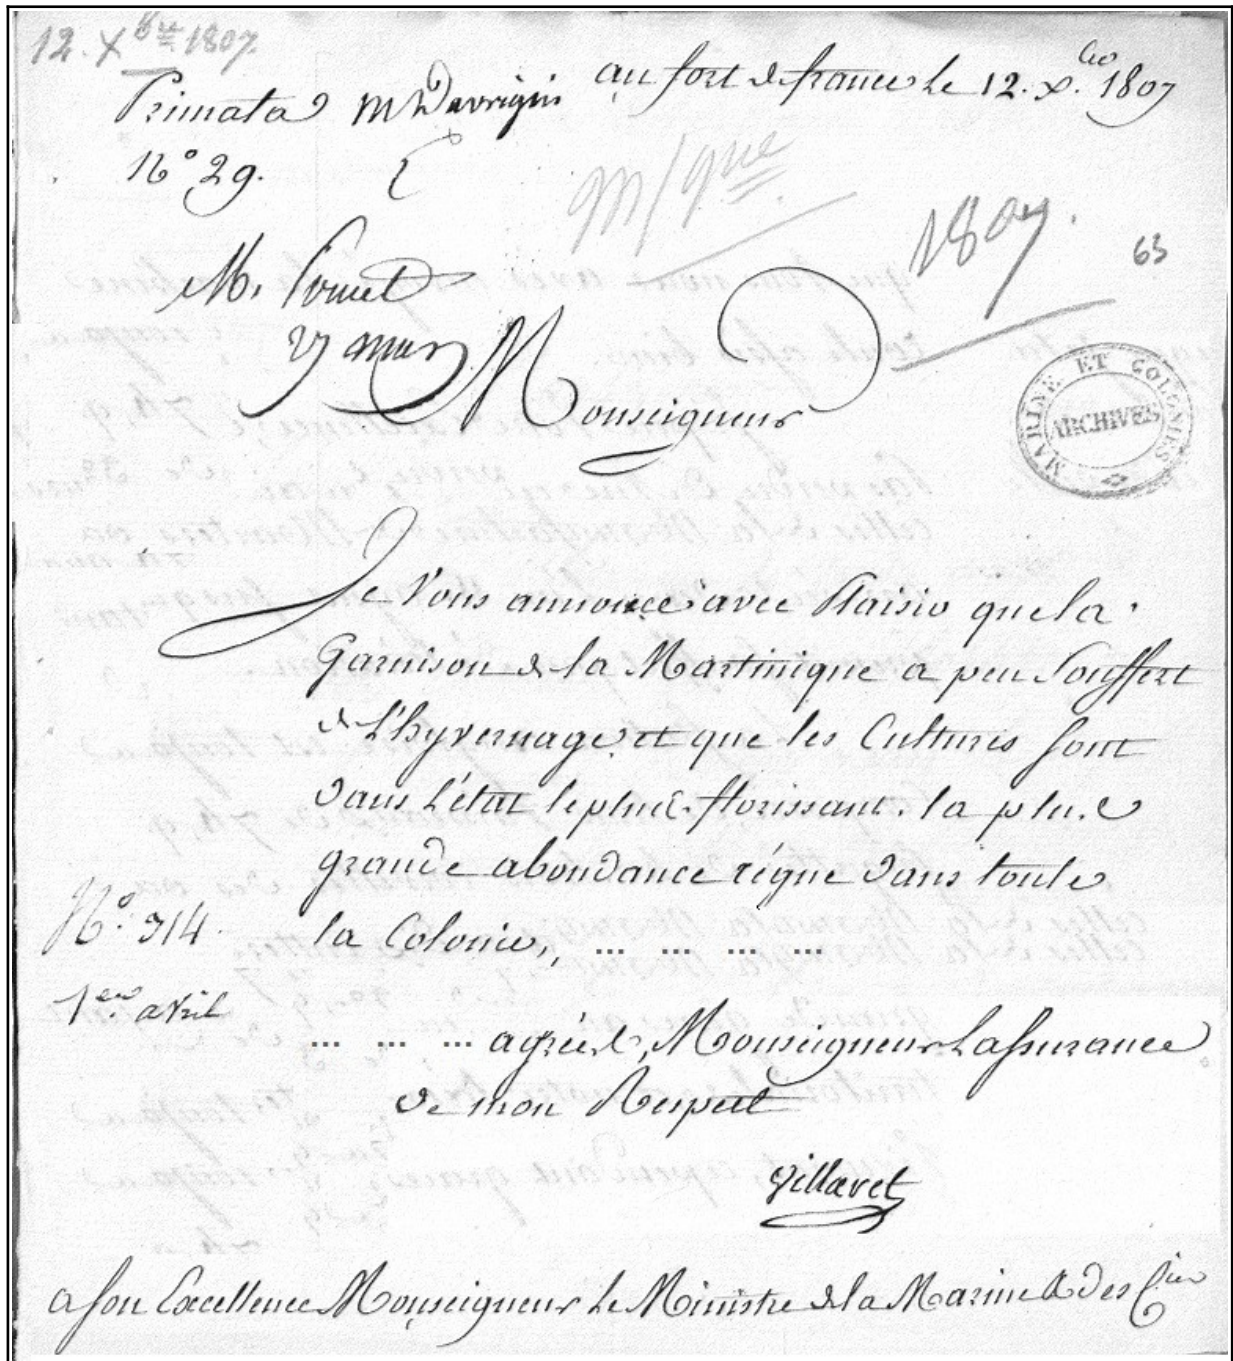 12. Xbre 1807.
au fort de france le 12. Xbre 1807
Primata
N° 29.
M/que
1807.
63
27 mars
Monseigneur
MARINE ET COLONIES
ARCHIVES
Je Vous annonce avec Plaisir que la
Garnison de la Martinique a peu Souffert
de L'hyvernage et que les Cultures sont
dans L'état le plus florissant. la plus
grande abondance régne dans toute
N°. 314.
la Colonie, ... ... ... ...
1er. avril
... ... ... agréez, Monseigneur L'assurance
de mon Respect
Villaret
a son Excellence Monseigneur Le Ministre de la Marine & des Cies